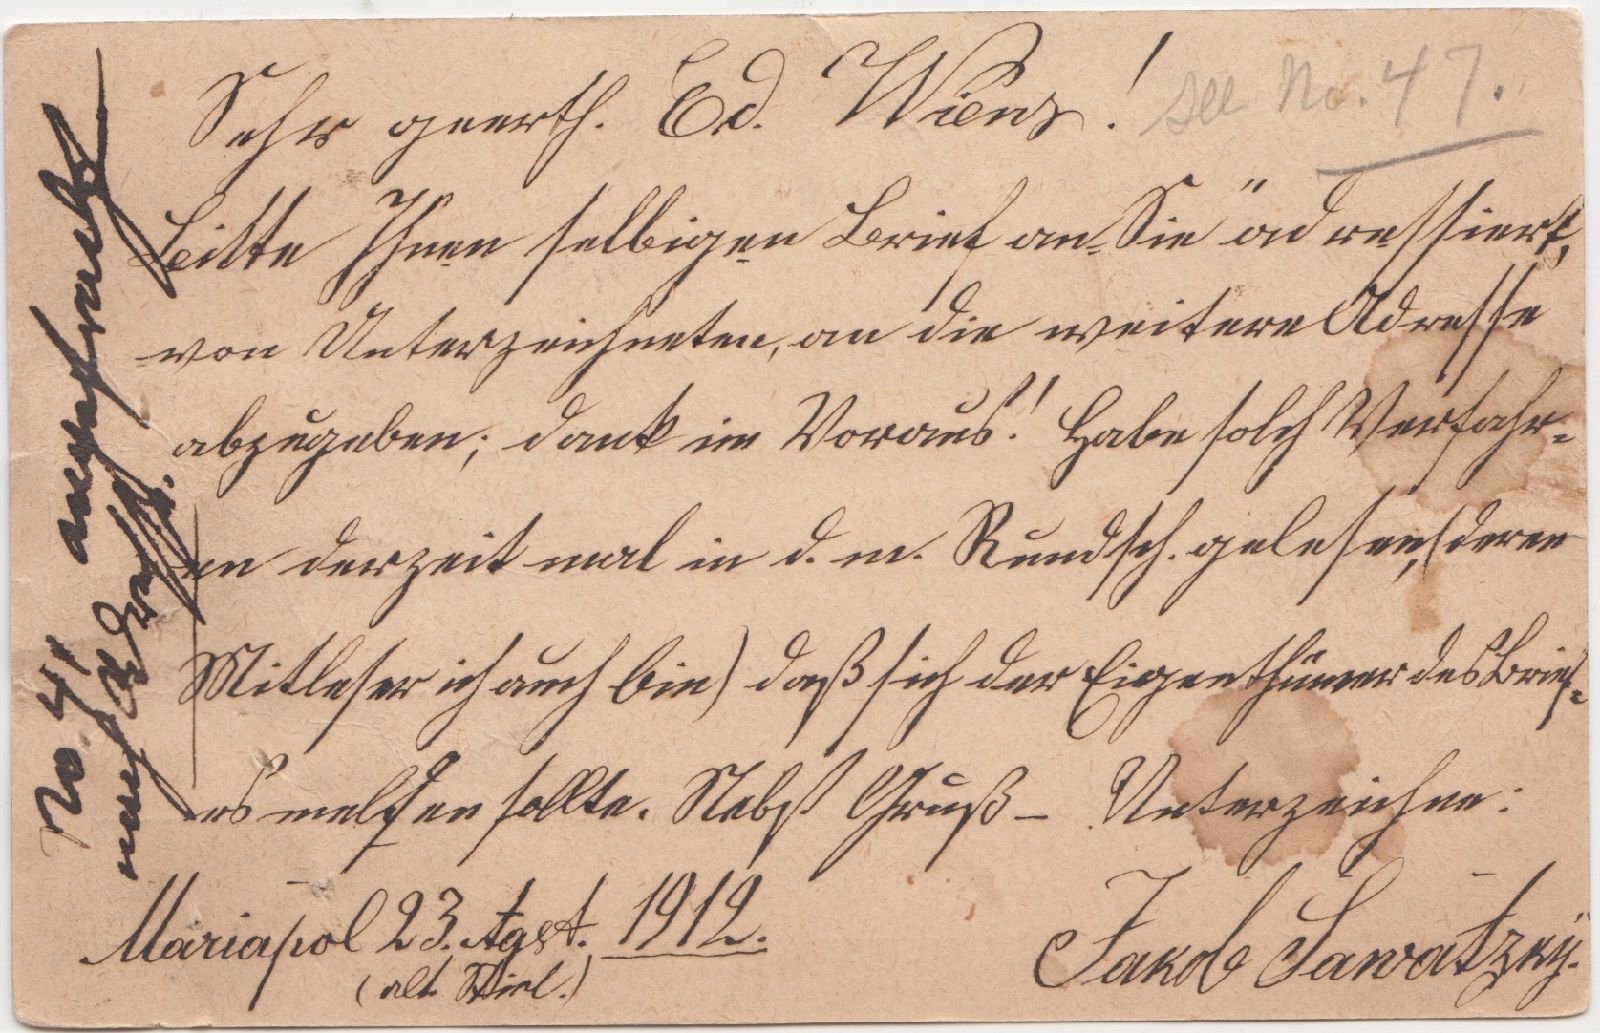 Sehr geerth. Ed. Wiens! see No. 47.
Bitte Ihnen selbigen Brief an Sie adressiert,
von Unterzeichneten, an die weitere Adresse
abzugeben; dank im Voraus! Habe solch Verfahr-
en derzeit mal in d. m. Rundsch. gelesen, (deren
Mitleser ich auch bin) daß sich der Eigenthümer des Brief-
es melden sollte. Nebst Gruß – Unterzeichne:
Mariapol 23. Agst. 1912.
(alt. Stiel.)
Jakob Sawatzky.
No 47
nach Adresse.